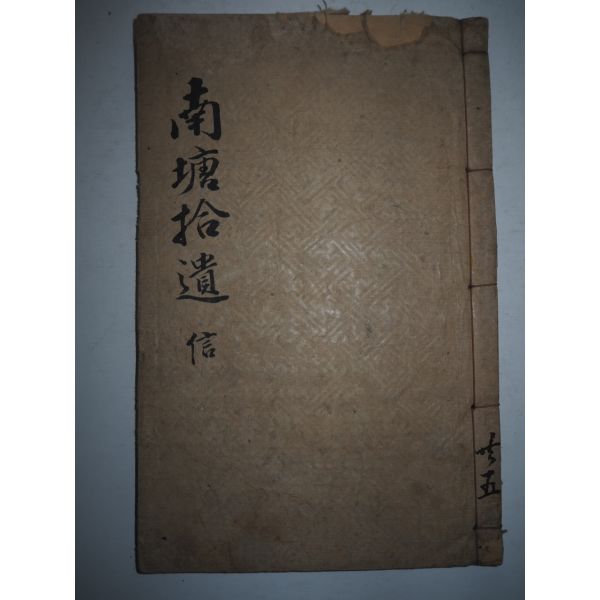 南塘拾遺
信
共五